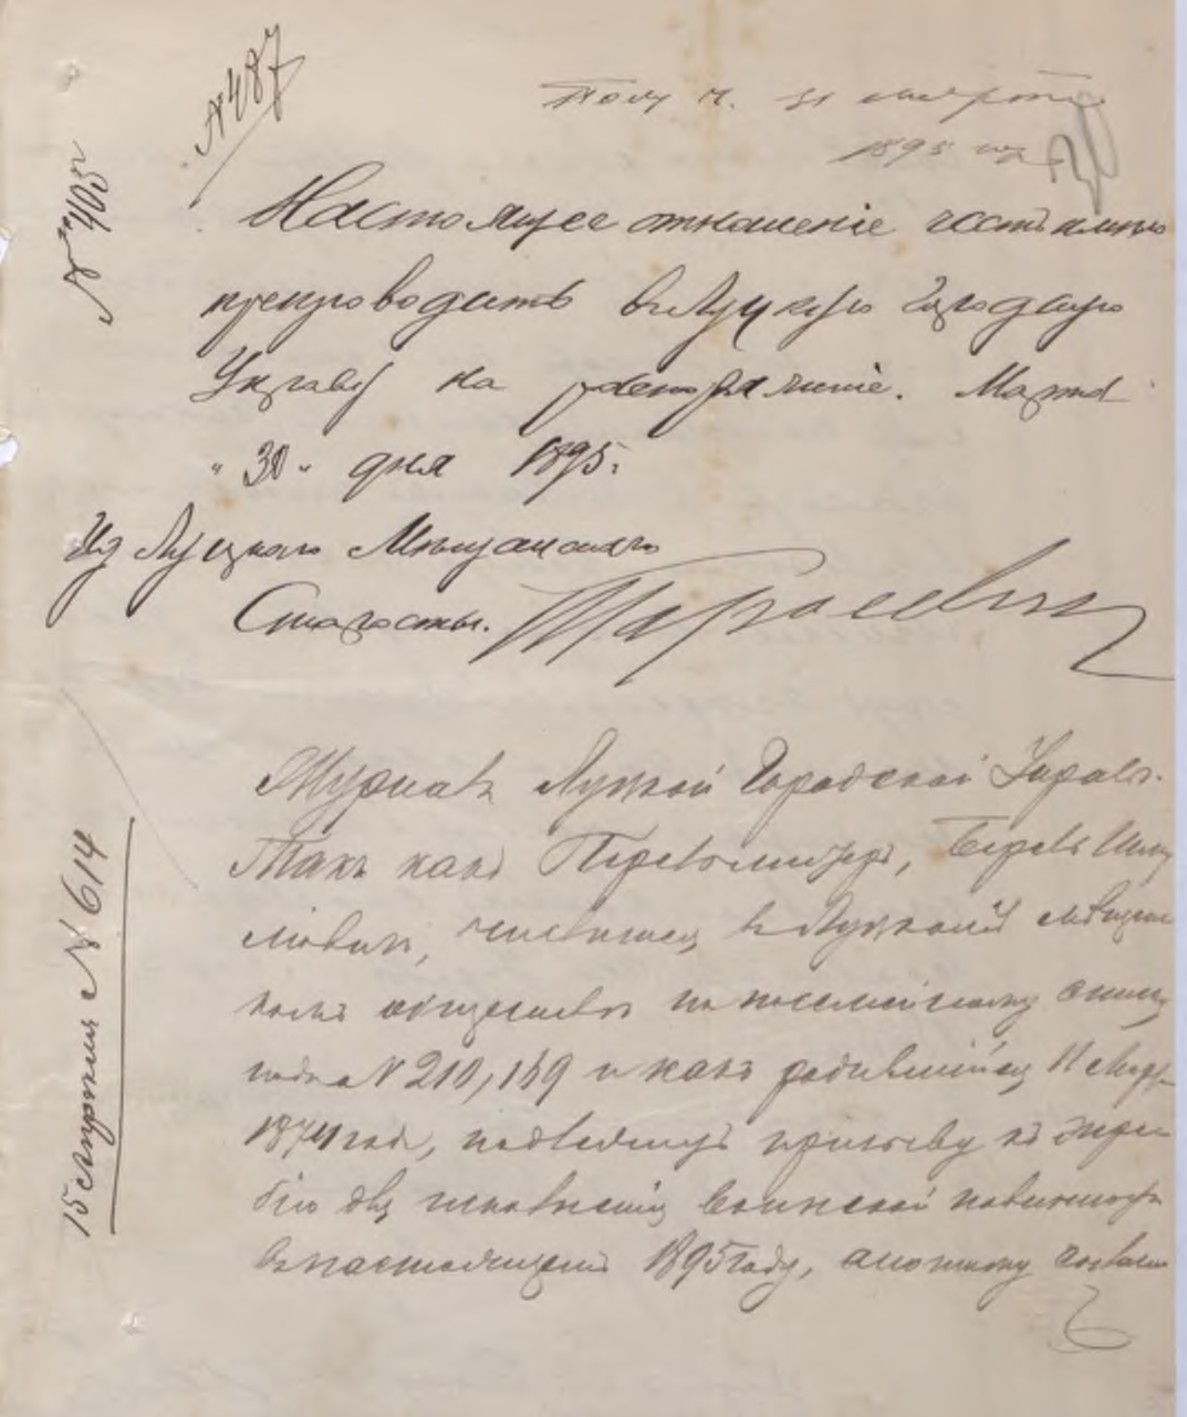 № 487
Полу ч. 31 марта
1895 года
№ 405
Настоящее отношеніе честь имѣю
препроводить въ Луцкую Городскую
Управу на распоряженіе. Марта
„ 30 „ дня 1895 г.
Из Луцкаго Мѣщанскаго
Старосты. Тарасевич
Журналъ Луцкой Городской Управы.
Такъ какъ Берко
числящійся въ Луцкомъ мѣщан
скомъ обществѣ по посемейному списку
подъ № 210/159 и какъ родившійся 11 Марта
1874 года, подлежитъ призыву къ жре
бію для исполненія воинской повинности
въ настоящемъ 1895 году, а потому
15 Апрѣля № 614